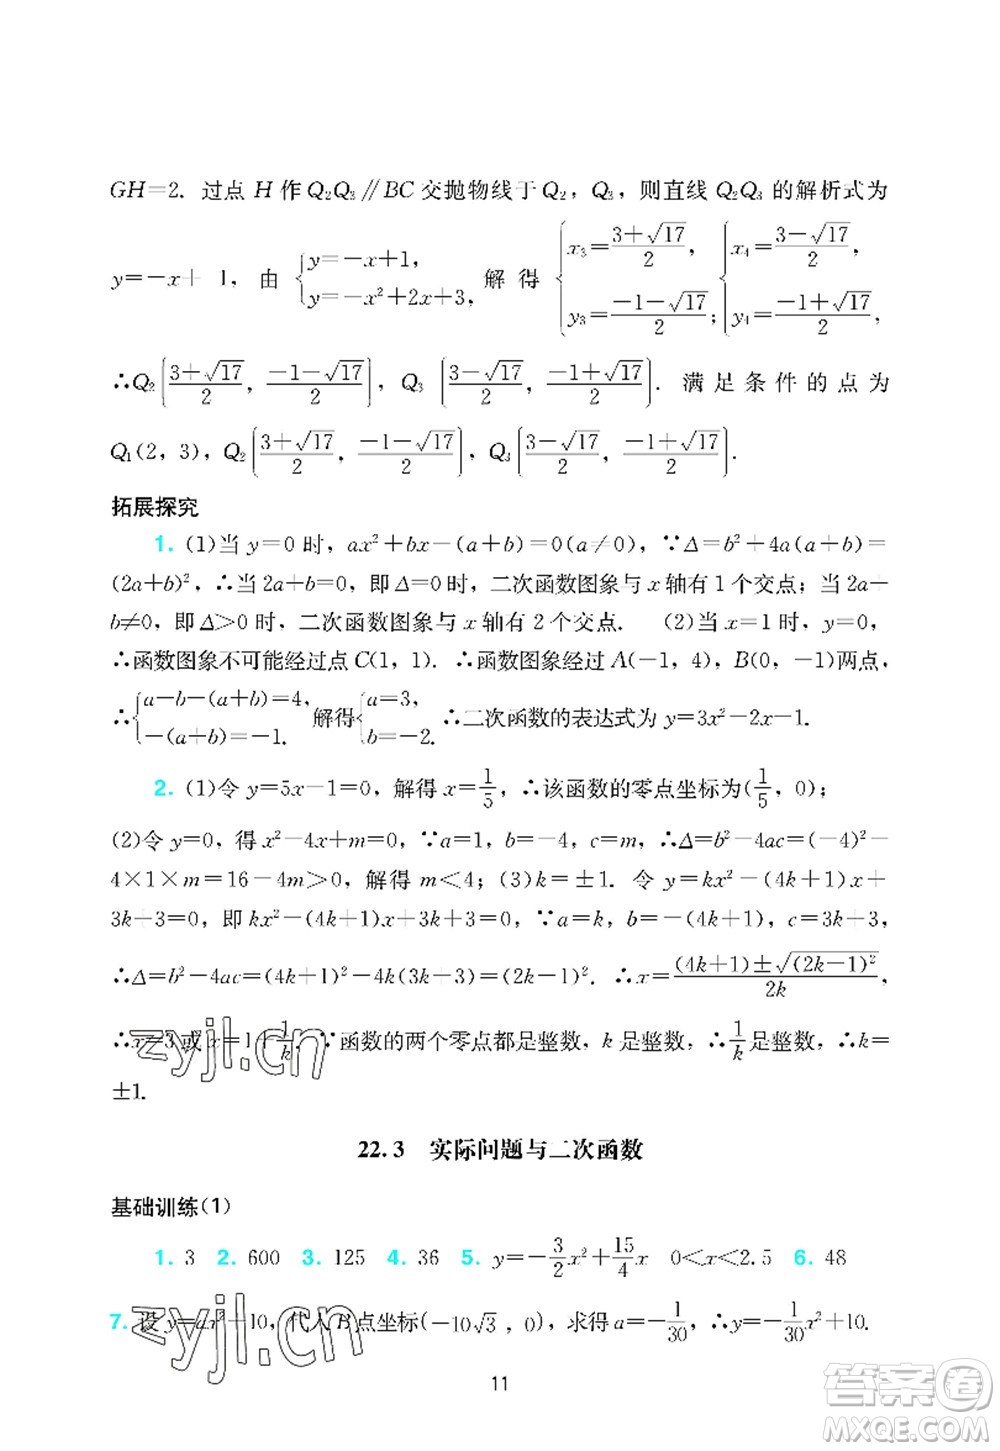 GH=2. 过点 H 作 Q₂Q₃∥BC 交抛物线于 Q₂，Q₃，则直线 Q₂Q₃ 的解析式为
y=-x+1, 由 {y=-x+1, y=-x²+2x+3, 解得 {x₃=(3+√17)/2, y₃=(-1-√17)/2; {x₄=(3-√17)/2, y₄=(-1+√17)/2,
∴Q₂[(3+√17)/2, (-1-√17)/2], Q₃[(3-√17)/2, (-1+√17)/2]. 满足条件的点为
Q₁(2, 3), Q₂[(3+√17)/2, (-1-√17)/2], Q₃[(3-√17)/2, (-1+√17)/2].
拓展探究
1. (1)当 y=0 时, ax²+bx-(a+b)=0(a≠0), ∵Δ=b²+4a(a+b)=
(2a+b)², ∴当 2a+b=0, 即 Δ=0 时, 二次函数图象与 x 轴有 1 个交点; 当 2a+
b≠0, 即 Δ>0 时, 二次函数图象与 x 轴有 2 个交点. (2)当 x=1 时, y=0,
∴函数图象不可能经过点 C(1, 1). ∴函数图象经过 A(-1, 4), B(0, -1)两点,
∴{a-b-(a+b)=4, -(a+b)=-1. 解得{a=3, b=-2. ∴二次函数的表达式为 y=3x²-2x-1.
2. (1)令 y=5x-1=0, 解得 x=1/5, ∴该函数的零点坐标为(1/5, 0);
(2)令 y=0, 得 x²-4x+m=0, ∵a=1, b=-4, c=m, ∴Δ=b²-4ac=(-4)²-
4×1×m=16-4m>0, 解得 m<4; (3)k=±1. 令 y=kx²-(4k+1)x+
3k+3=0, 即 kx²-(4k+1)x+3k+3=0, ∵a=k, b=-(4k+1), c=3k+3,
∴Δ=b²-4ac=(4k+1)²-4k(3k+3)=(2k-1)². ∴x=((4k+1)±√(2k-1)²)/2k,
∴x=3 或 x=1+1/k, ∵函数的两个零点都是整数, k 是整数, ∴1/k是整数, ∴k=
±1.
22.3 实际问题与二次函数
基础训练(1)
1. 3 2. 600 3. 125 4. 36 5. y=-3/2x²+15/4x 0<x<2.5 6. 48
7. 设 y=ax²+10, 代入 B 点坐标(-10√3, 0), 求得 a=-1/30, ∴y=-1/30x²+10.
11
zyjl.cn
zyjl.cn
答案圈
MXQE.COM